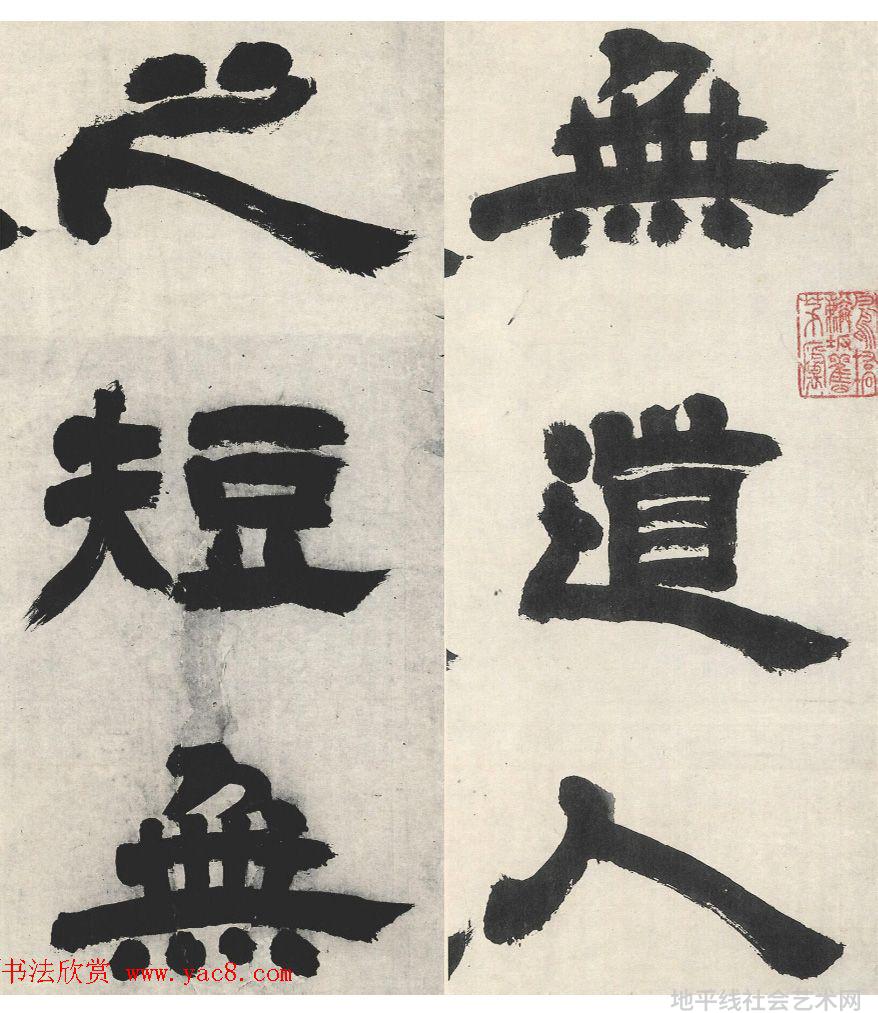 無道人
之短無
书法欣赏 www.yac8.com
地平线社会艺术网